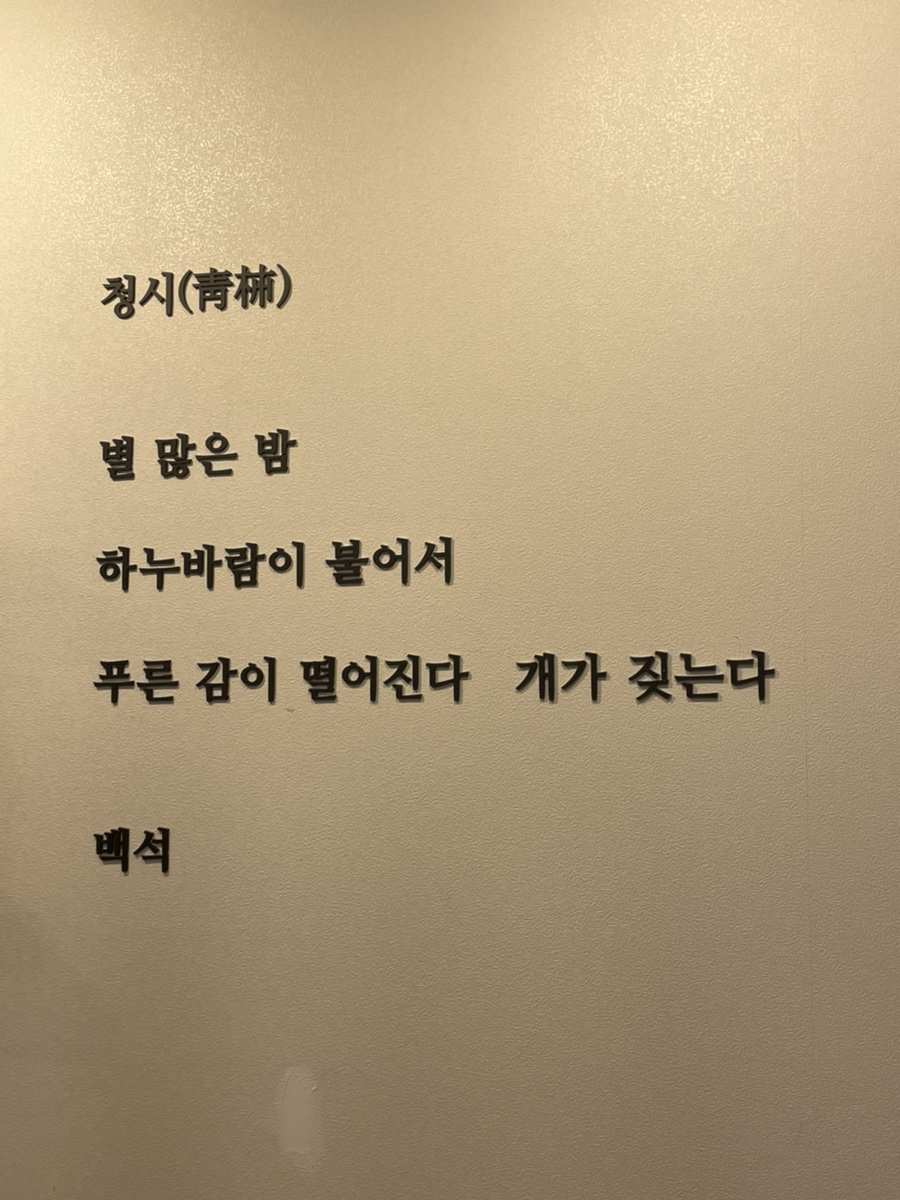 청시(靑枾)
별 많은 밤
하누바람이 불어서
푸른 감이 떨어진다 개가 짖는다
백석